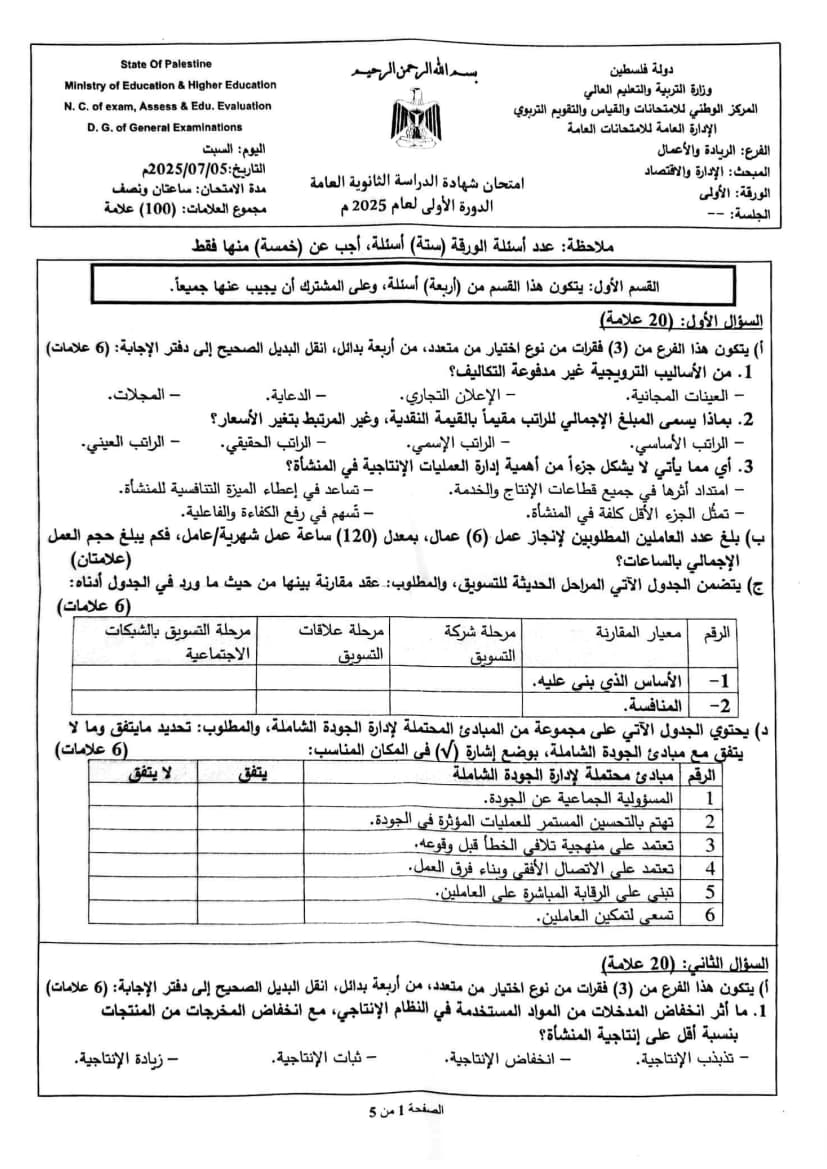 State Of Palestine
Ministry of Education & Higher Education
N. C. of exam, Assess & Edu. Evaluation
D. G. of General Examinations
اليوم: السبت
التاريخ:2025/07/05م
مدة الامتحان: ساعتان ونصف
مجموع العلامات: (100) علامة
بسم الله الرحمن الرحيم
امتحان شهادة الدراسة الثانوية العامة
الدورة الأولى لعام 2025 م
دولة فلسطين
وزارة التربية والتعليم العالي
المركز الوطني للامتحانات والقياس والتقويم التربوي
الإدارة العامة للامتحانات العامة
الفرع: الريادة والأعمال
المبحث: الإدارة والاقتصاد
الورقة: الأولى
الجلسة: --
ملاحظة: عدد أسئلة الورقة (ستة) أسئلة، أجب عن (خمسة) منها فقط
القسم الأول: يتكون هذا القسم من (أربعة) أسئلة، وعلى المشترك أن يجيب عنها جميعاً.
السؤال الأول: (20 علامة)
أ) يتكون هذا الفرع من (3) فقرات من نوع اختيار من متعدد، من أربعة بدائل، انقل البديل الصحيح إلى دفتر الإجابة: (6 علامات)
1. من الأساليب الترويجية غير مدفوعة التكاليف؟
– العينات المجانية. – الإعلان التجاري. – الدعاية. – المجلات.
2. بماذا يسمى المبلغ الإجمالي للراتب مقيماً بالقيمة النقدية، وغير المرتبط بتغير الأسعار؟
– الراتب الأساسي. – الراتب الإسمي. – الراتب الحقيقي. – الراتب العيني.
3. أي مما يأتي لا يشكل جزءاً من أهمية إدارة العمليات الإنتاجية في المنشأة؟
– امتداد أثرها في جميع قطاعات الإنتاج والخدمة. – تساعد في إعطاء الميزة التنافسية للمنشأة.
– تمثُل الجزء الأقل كلفة في المنشأة. – تُسهم في رفع الكفاءة والفاعلية.
ب) بلغ عدد العاملين المطلوبين لإنجاز عمل (6) عمال، بمعدل (120) ساعة عمل شهرية/عامل، فكم يبلغ حجم العمل
الإجمالي بالساعات؟ (علامتان)
ج) يتضمن الجدول الآتي المراحل الحديثة للتسويق، والمطلوب: عقد مقارنة بينها من حيث ما ورد في الجدول أدناه:
(6 علامات)
الرقم معيار المقارنة مرحلة شركة التسويق مرحلة علاقات التسويق مرحلة التسويق بالشبكات الاجتماعية
1- الأساس الذي بني عليه.
2- المنافسة.
د) يحتوي الجدول الآتي على مجموعة من المبادئ المحتملة لإدارة الجودة الشاملة، والمطلوب: تحديد مايتفق وما لا
يتفق مع مبادئ الجودة الشاملة، بوضع إشارة (√) في المكان المناسب: (6 علامات)
الرقم مبادئ محتملة لإدارة الجودة الشاملة يتفق لا يتفق
1 المسؤولية الجماعية عن الجودة.
2 تهتم بالتحسين المستمر للعمليات المؤثرة في الجودة.
3 تعتمد على منهجية تلافي الخطأ قبل وقوعه.
4 تعتمد على الاتصال الأفقي وبناء فرق العمل.
5 تبنى على الرقابة المباشرة على العاملين.
6 تسعى لتمكين العاملين.
السؤال الثاني: (20 علامة)
أ) يتكون هذا الفرع من (3) فقرات من نوع اختيار من متعدد، من أربعة بدائل، انقل البديل الصحيح إلى دفتر الإجابة: (6 علامات)
1. ما أثر انخفاض المدخلات من المواد المستخدمة في النظام الإنتاجي، مع انخفاض المخرجات من المنتجات
بنسبة أقل على إنتاجية المنشأة؟
– تذبذب الإنتاجية. – انخفاض الإنتاجية. – ثبات الإنتاجية. – زيادة الإنتاجية.
الصفحة 1 من 5